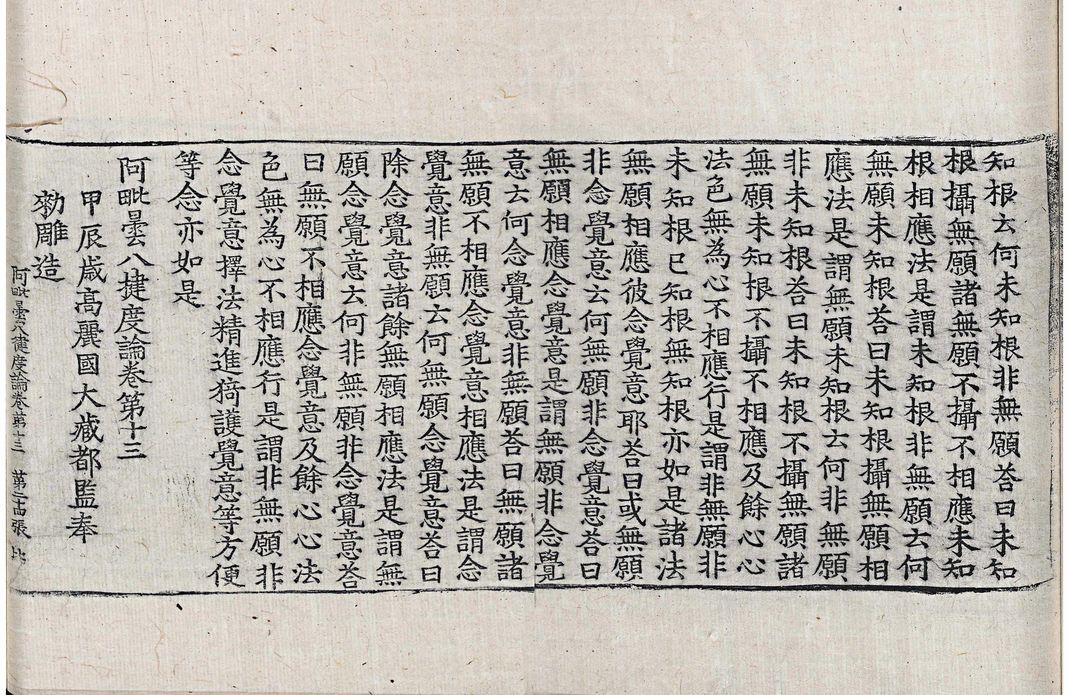 知根云何未知根非無願荅曰未知
根攝無願諸無願不攝不相應未知
根相應法是謂未知根非無願云何
無願未知根荅曰未知根攝無願相
應法是謂無願未知根云何非無願
非未知根荅曰未知根不攝無願諸
無願未知根不攝不相應及餘心心
法色無為心不相應行是謂非無願非
未知根已知根無知根亦如是諸法
無願相應彼念覺意耶荅曰或無願
非念覺意云何無願非念覺意荅曰
無願相應念覺意是謂無願非念覺
意云何念覺意非無願荅曰無願諸
無願不相應念覺意相應法是謂念
覺意非無願云何無願念覺意荅曰
除念覺意諸餘無願相應法是謂無
願念覺意云何非無願非念覺意荅
曰無願不相應念覺意及餘心心法
色無為心不相應行是謂非無願非
念覺意擇法精進猗護覺意等方便
等念亦如是
阿毗曇八揵度論卷第十三
甲辰歲高麗國大藏都監奉
勑雕造
阿毗曇八揵度論卷第十三 第二十張